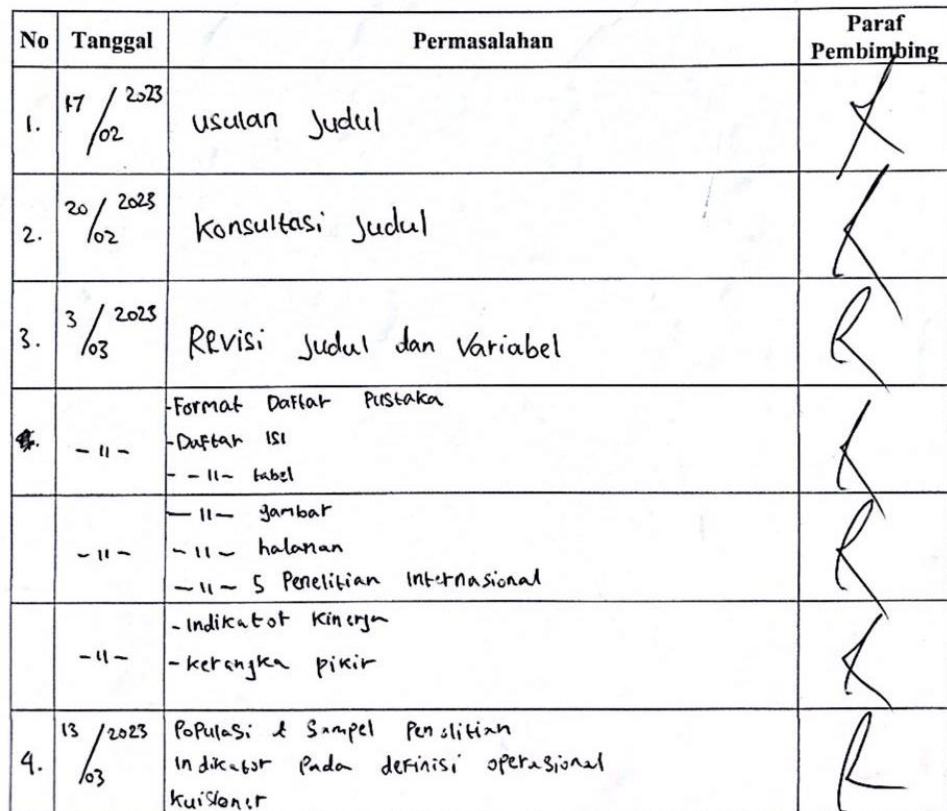 No Tanggal Permasalahan Paraf Pembimbing
1. 17/02 2023 usulan Judul
2. 20/02 2023 Konsultasi Judul
3. 3/03 2023 Revisi Judul dan Variabel
-Format Daftar Pustaka
- 11 - -Daftar ISI
- - 11 - tabel
- 11 - gambar
- 11 - - 11 - halaman
- 11 - 5 Penelitian Internasional
- Indikator Kinerja
- 11 - - kerangka pikir
4. 13/03 2023 Populasi & Sampel Penelitian
Indikator Pada definisi operasional
Kuisioner